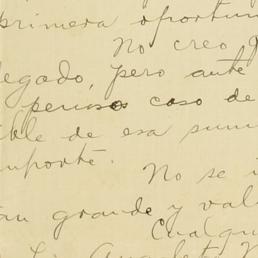 primera oportun
No creo q
legado, pero ante
penoso caso de
ible de esa sum
mporté.
No se i
an grande y val
Cualqu